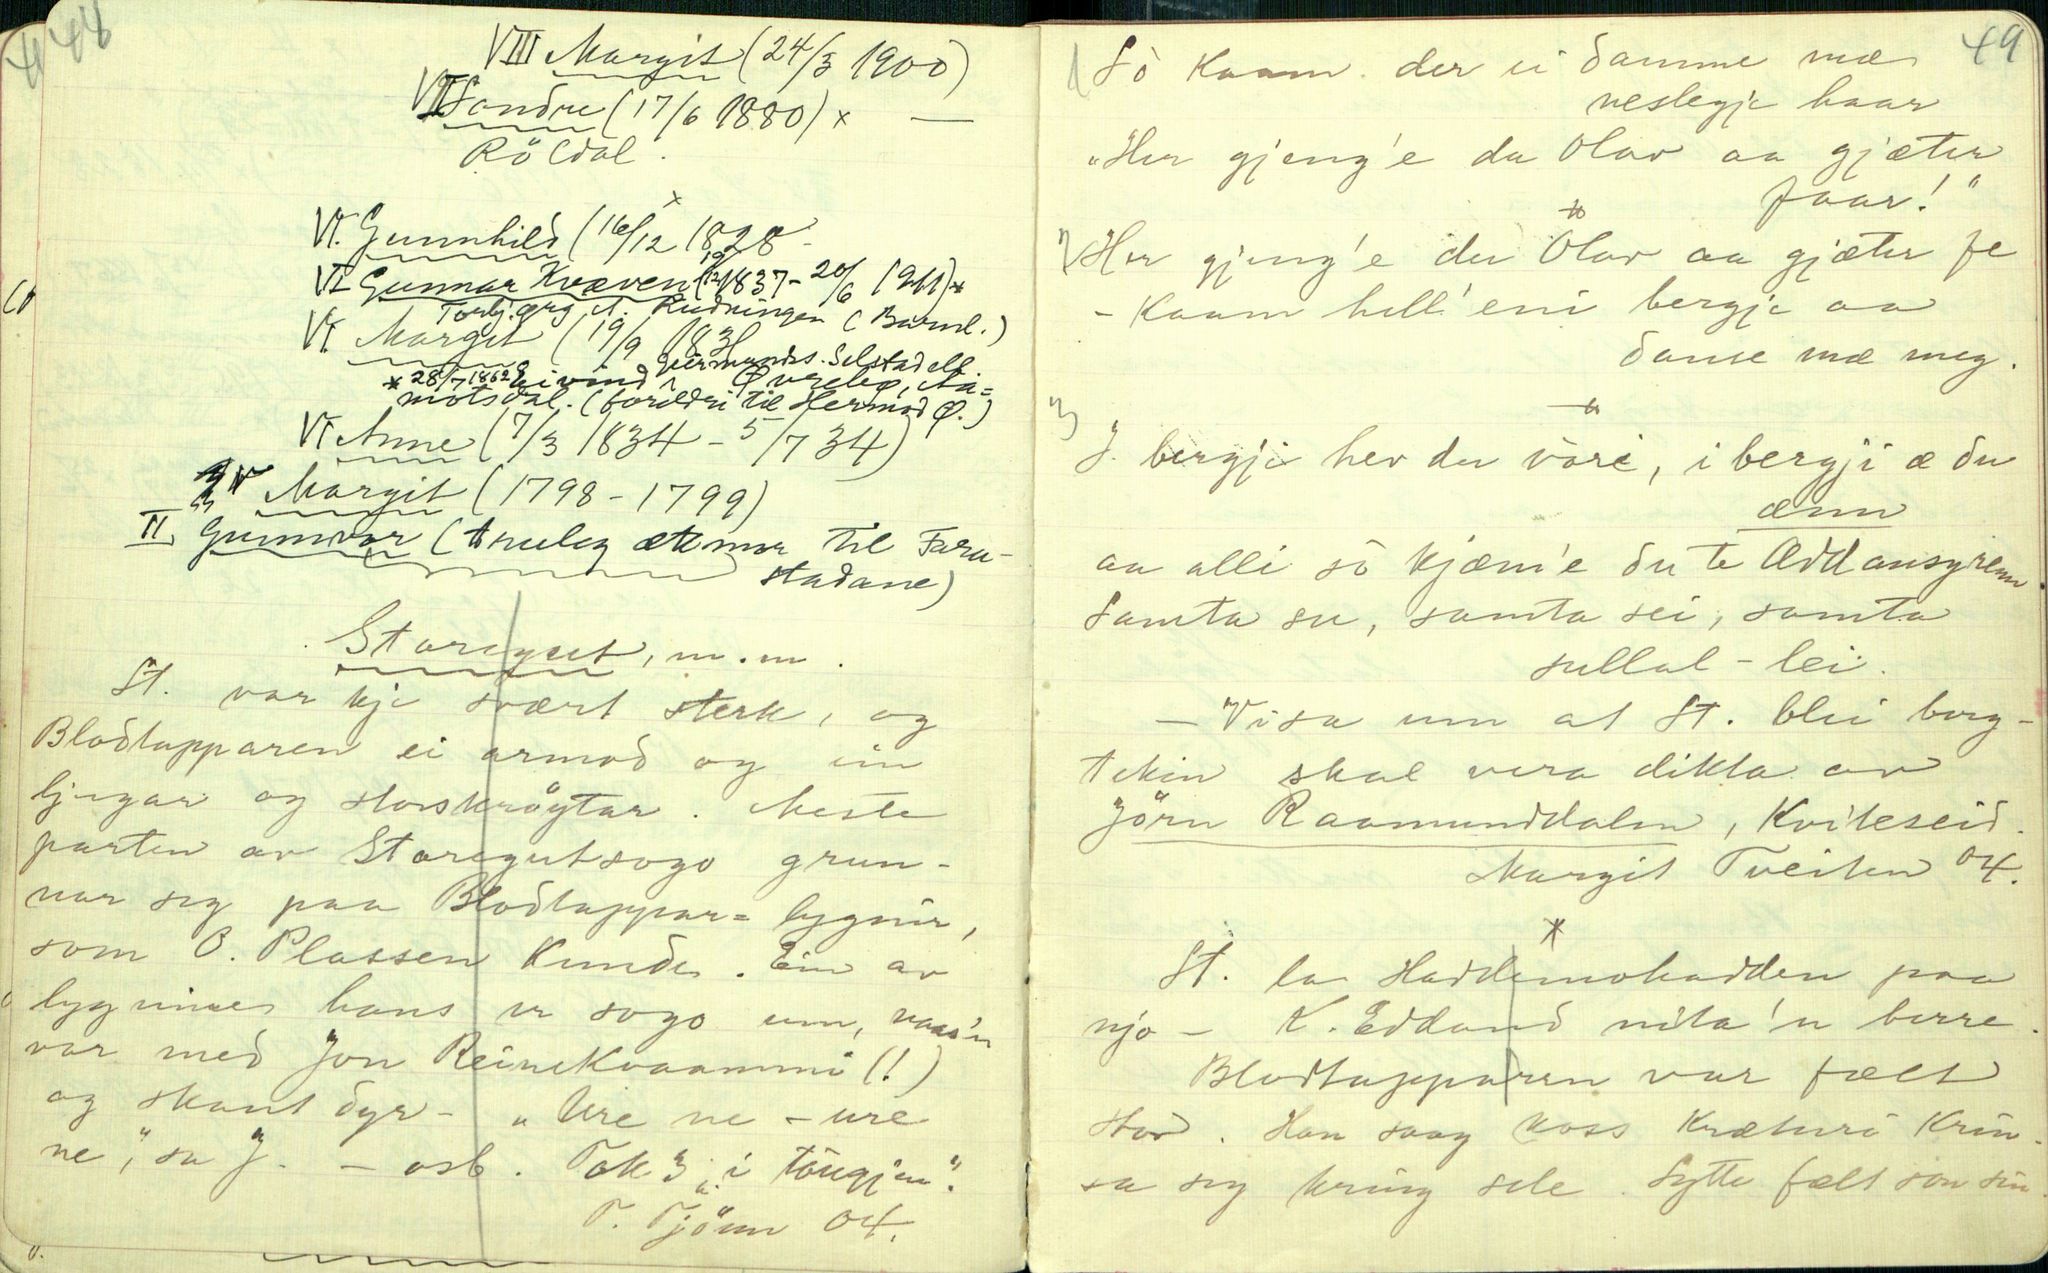 48
VIII Margit (24/3 1900)
VII Sondre (17/6 1880) x —
Röldal.
VI. Gunnhild (16/12 1828 -
VI Gunnar Kvæven (1837 - 20/6 1911) x
Torbj.ørg Rudningen (Barnl.)
VI. Margit (19/9 183
* 28/7 1862 Eivind Geirmunds. Selstad ell.
motsdal. (foreldri til Hermod Ø.)
VI Anne (7/3 1834 - 5/7 34)
IV Margit (1798 - 1799)
II. Gunnvor (truleg ættemor til Faru-
stadane)
Storegut, m.m.
St. var kje svært sterk, og
Blodtapparen ei armod og ein
ljugar og storskrøytar. Meste
parten av Storegutsogo grun-
nar seg paa Blodtappar= lygnir,
som O. Plassen kunde. Ein av
lygnine hans er sogo um, naar'n
var med Jon Reinekvaammi (!)
og skaut dyr - „Ure ne - ure
ne", sa J. - osb. Tok 3 „i töugjen".
T. Tjönn 04.
49
1) Sò kaam der ei damme mæ
neslegje haar
„Her gjeng'e du Olav aa gjæter
faar!"
2) Her gjeng'e du Olav aa gjæter fe
- kaam hell' eni bergje aa
danse mæ meg.
3)
I bergje hev du vòre, i bergji æ du
ænn
aa alli sò kjæm'e du te Øddansgrenn
Samta su, samta sei, samta
sullal - lei.
— Visa um at St. blei berg-
tekin skal vera dikta av
Jörn Raamunddalen, Kviteseid.
Margit Tveiten 04.
*
St. la Haddemohadden paa
njo - K. Eddand nita'n berre.
Blodtapparen var fælt
stor. Han saag koss kræturi krin-
sa seg kring sele. Sytte fælt son sin